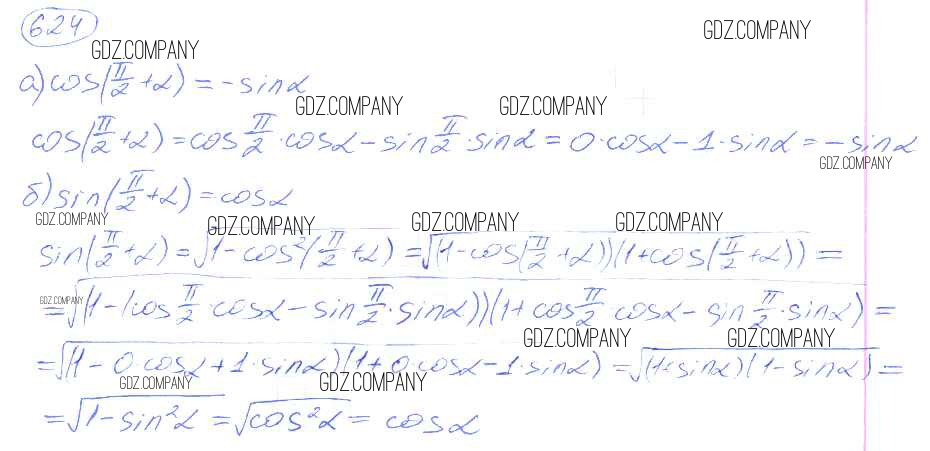 624
GDZ.COMPANY
GDZ.COMPANY
а) cos(π/2 + α) = -sinα
GDZ.COMPANY GDZ.COMPANY
cos(π/2 + α) = cos π/2 · cosα - sin π/2 · sinα = 0 · cosα - 1 · sinα = -sinα
GDZ.COMPANY
б) sin(π/2 + α) = cosα
GDZ.COMPANY GDZ.COMPANY GDZ.COMPANY GDZ.COMPANY
sin(π/2 + α) = √(1 - cos²(π/2 + α)) = √((1 - cos(π/2 + α))(1 + cos(π/2 + α))) =
GDZ.COMPANY
= √((1 - (cos π/2 · cosα - sin π/2 · sinα))(1 + cos π/2 · cosα - sin π/2 · sinα)) =
GDZ.COMPANY GDZ.COMPANY
= √((1 - 0 · cosα + 1 · sinα)(1 + 0 · cosα - 1 · sinα)) = √((1 + sinα)(1 - sinα)) =
GDZ.COMPANY GDZ.COMPANY
= √(1 - sin²α) = √(cos²α) = cosα